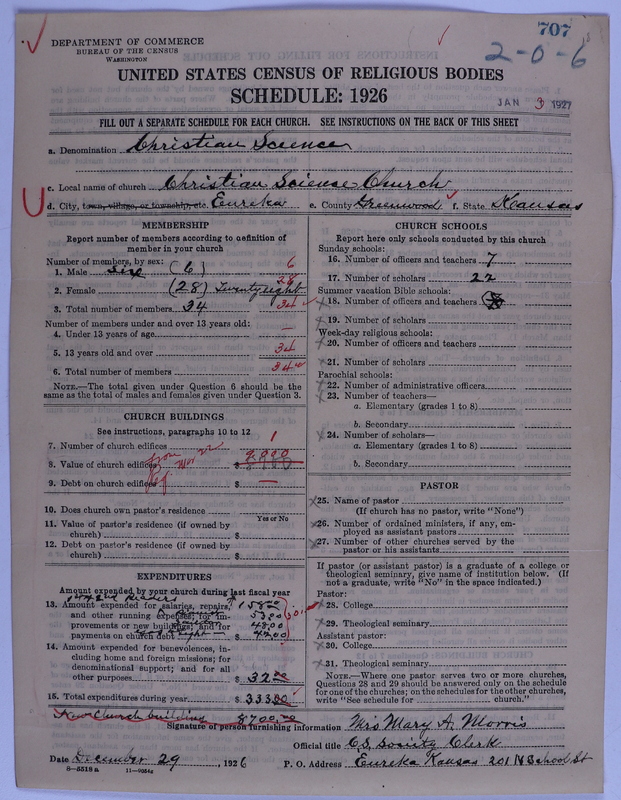 707
2-0-6
DEPARTMENT OF COMMERCE
BUREAU OF THE CENSUS
WASHINGTON
UNITED STATES CENSUS OF RELIGIOUS BODIES
SCHEDULE: 1926
JAN 3 1927
FILL OUT A SEPARATE SCHEDULE FOR EACH CHURCH. SEE INSTRUCTIONS ON THE BACK OF THIS SHEET
a. Denomination Christian Science
c. Local name of church Christian Science Church
d. City, town, village, or township, etc. Eureka e. County Greenwood f. State Kansas
MEMBERSHIP
Report number of members according to definition of
member in your church
Number of members, by sex:
1. Male six (6) 6
2. Female (28) Twenty eight 28
3. Total number of members 34 34
Number of members under and over 13 years old:
4. Under 13 years of age —
5. 13 years old and over 34
6. Total number of members 34
NOTE.—The total given under Question 6 should be the
same as the total of males and females given under Question 3.
CHURCH BUILDINGS
See instructions, paragraphs 10 to 12
7. Number of church edifices 1
8. Value of church edifices $ 9,000
9. Debt on church edifices $ —
10. Does church own pastor's residence
Yes or No
11. Value of pastor's residence (if owned by
church) $
12. Debt on pastor's residence (if owned by
church) $
EXPENDITURES
Amount expended by your church during last fiscal year
13. Amount expended for salaries, repairs,
and other running expenses; for im-
provements or new buildings; and for
payments on church debt
14. Amount expended for benevolences, in-
cluding home and foreign missions; for
denominational support; and for all
other purposes $ 32.00
15. Total expenditures during year $ 333.00
New Church building 8700.00
CHURCH SCHOOLS
Report here only schools conducted by this church
Sunday schools:
16. Number of officers and teachers 7
17. Number of scholars 22
Summer vacation Bible schools:
18. Number of officers and teachers
19. Number of scholars
Week-day religious schools:
20. Number of officers and teachers
21. Number of scholars
Parochial schools:
22. Number of administrative officers
23. Number of teachers—
a. Elementary (grades 1 to 8)
b. Secondary
24. Number of scholars—
a. Elementary (grades 1 to 8)
b. Secondary
PASTOR
25. Name of pastor
(If church has no pastor, write "None")
26. Number of ordained ministers, if any, em-
ployed as assistant pastors
27. Number of other churches served by the
pastor or his assistants
If pastor (or assistant pastor) is a graduate of a college or
theological seminary, give name of institution below. (If
not a graduate, write "No" in the space indicated.)
Pastor:
28. College
29. Theological seminary
Assistant pastor:
30. College
31. Theological seminary
NOTE.—Where one pastor serves two or more churches,
Questions 28 and 29 should be answered only on the schedule
for one of the churches; on the schedules for the other churches,
write "See schedule for church."
Signature of person furnishing information Mrs Mary A. Morris
Official title C.S. Society Clerk
Date December 29, 1926 P. O. Address Eureka Kansas 201 N School St
8—5518a 11—9054c